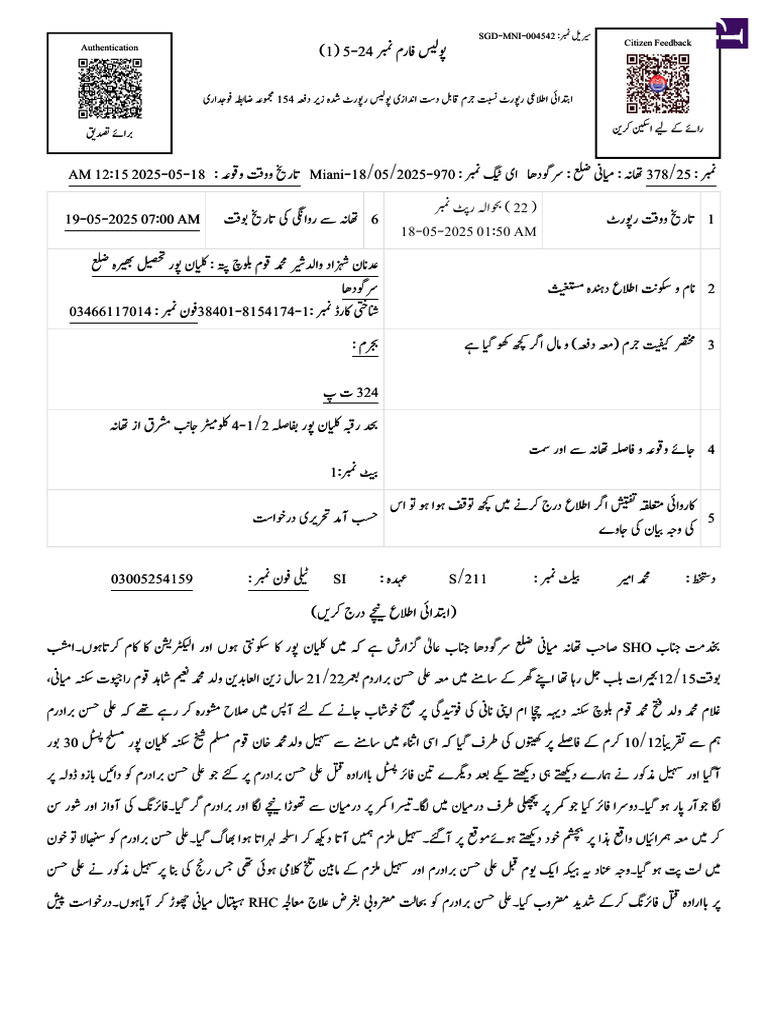 Authentication
برائے تصدیق
پولیس فارم نمبر 24-5 (1)
سیریل نمبر: SGD-MNI-004542
Citizen Feedback
رائے کے لیے اسکین کریں
ابتدائی اطلاعی رپورٹ نسبت جرم قابل دست اندازی پولیس رپورٹ شدہ زیر دفعہ 154 مجموعہ ضابطہ فوجداری
نمبر : 378/25 تھانہ : میانی ضلع : سرگودھا ای ٹیگ نمبر : Miani-18/05/2025-970 تاریخ ووقت وقوعہ : 18-05-2025 12:15 AM
1 تاریخ ووقت رپورٹ
( 22 ) بحوالہ رپٹ نمبر
18-05-2025 01:50 AM
6 تھانہ سے روانگی کی تاریخ بوقت
19-05-2025 07:00 AM
2 نام و سکونت اطلاع دہندہ مستغیث
عدنان شہزاد والد شیر محمد قوم بلوچ پتہ : کلیان پور تحصیل بھیرہ ضلع
سرگودھا
شناختی کارڈ نمبر :1-8154174-38401 فون نمبر : 03466117014
3 مختصر کیفیت جرم (معہ دفعہ) و مال اگر کچھ کھو گیا ہے
بجرم :
324 ت پ
4 جائے وقوعہ و فاصلہ تھانہ سے اور سمت
بحد رقبہ کلیان پور بفاصلہ 1/2-4 کلومیٹر جانب مشرق از تھانہ
بیٹ نمبر :1
5 کاروائی متعلقہ تفتیش اگر اطلاع درج کرنے میں کچھ توقف ہوا ہو تو اس
کی وجہ بیان کی جاوے
حسب آمد تحریری درخواست
دستخط : محمد امیر بیلٹ نمبر : 211/S عہدہ : SI ٹیلی فون نمبر : 03005254159
(ابتدائی اطلاع نیچے درج کریں)
بخدمت جناب SHO صاحب تھانہ میانی ضلع سرگودھا جناب عالی گزارش ہے کہ میں کلیان پور کا سکونتی ہوں اور الیکٹریشن کا کام کرتاہوں۔امشب
بوقت12/15بجیرات بلب جل رہا تھا اپنے گھر کے سامنے میں معہ علی حسن برادرم بعمر21/22 سال زین العابدین ولد محمد نعیم شاہد قوم راجپوت سکنہ میانی،
غلام محمد ولد فتح محمد قوم بلوچ سکنہ دیہہ چچا ام اپنی نانی کی فوتیدگی پر صبح خوشاب جانے کے لئے آپس میں صلاح مشورہ کر رہے تھے کہ علی حسن برادرم
ہم سے تقریباً10/12 کرم کے فاصلے پر کھیتوں کی طرف گیا کہ اسی اثناء میں سامنے سے سہیل ولدمحمد خان قوم مسلم شیخ سکنہ کلیان پور مسلح پسٹل 30 بور
آگیا اور سہیل مذکور نے ہمارے دیکھتے ہی دیکھتے یکے بعد دیگرے تین فائر پسٹل باارادہ قتل علی حسن برادرم پر کئے جو علی حسن برادرم کو دائیں بازو ڈولہ پر
لگا جوآر پار ہو گیا۔دوسرا فائر کیا جو کمر پر پچھلی طرف درمیان میں لگا۔تیسرا کمر پر درمیان سے تھوڑا نیچے لگا اور برادرم گر گیا۔فائرنگ کی آواز اور شور سن
کر میں معہ ہمرائیاں واقع ہذا پر بچشم خود دیکھتے ہوئےموقع پر آگئے۔سہیل ملزم ہمیں آتا دیکھ کر اسلحہ لہراتا ہوا بھاگ گیا۔علی حسن برادرم کو سنبھالا تو خون
میں لت پت ہو گیا۔وجہ عناد یہ ہیکہ ایک یوم قبل علی حسن برادرم اور سہیل ملزم کے مابین تلخ کلامی ہوئی تھی جس رنج کی بنا پرسہیل مذکور نے علی حسن
پر باارادہ قتل فائرنگ کرکے شدید مضروب کیا۔علی حسن برادرم کو بحالت مضروبی بغرض علاج معالجہ RHC ہسپتال میانی چھوڑ کر آیاہوں۔درخواست پیش